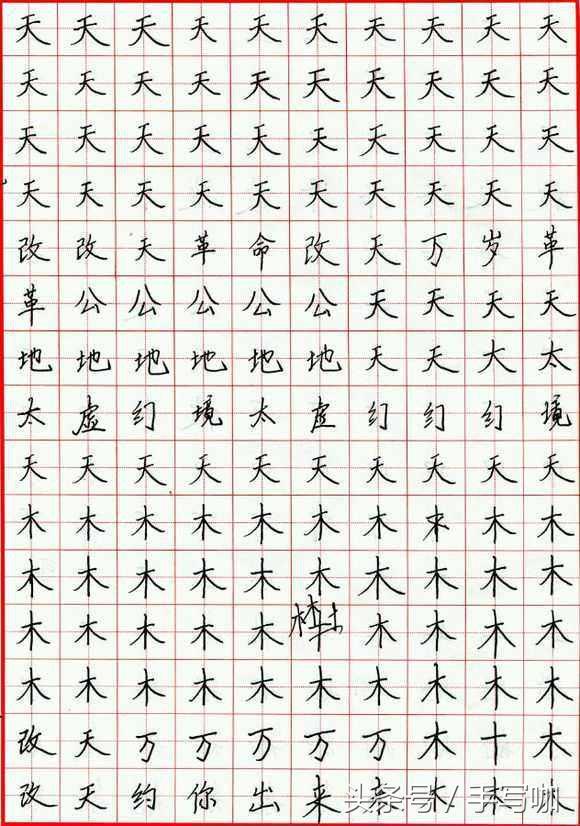 天天天天天天天天天天
天天天天天天天天天天
天天天天天天天天天天
天天天天天天天天天天
改改天革命改天万岁革
革公公公公公天天天天
地地地地地地天天大太
太虚幻境太虚幻幻幻境
天天天天天天天天天天
木木木木木木木木木
木木木木木木木木木木
木木木木木木木木木
木木木木木木木木木木
改天万万万万万木十木
改天约你出来木木木
头条号 / 手写咖